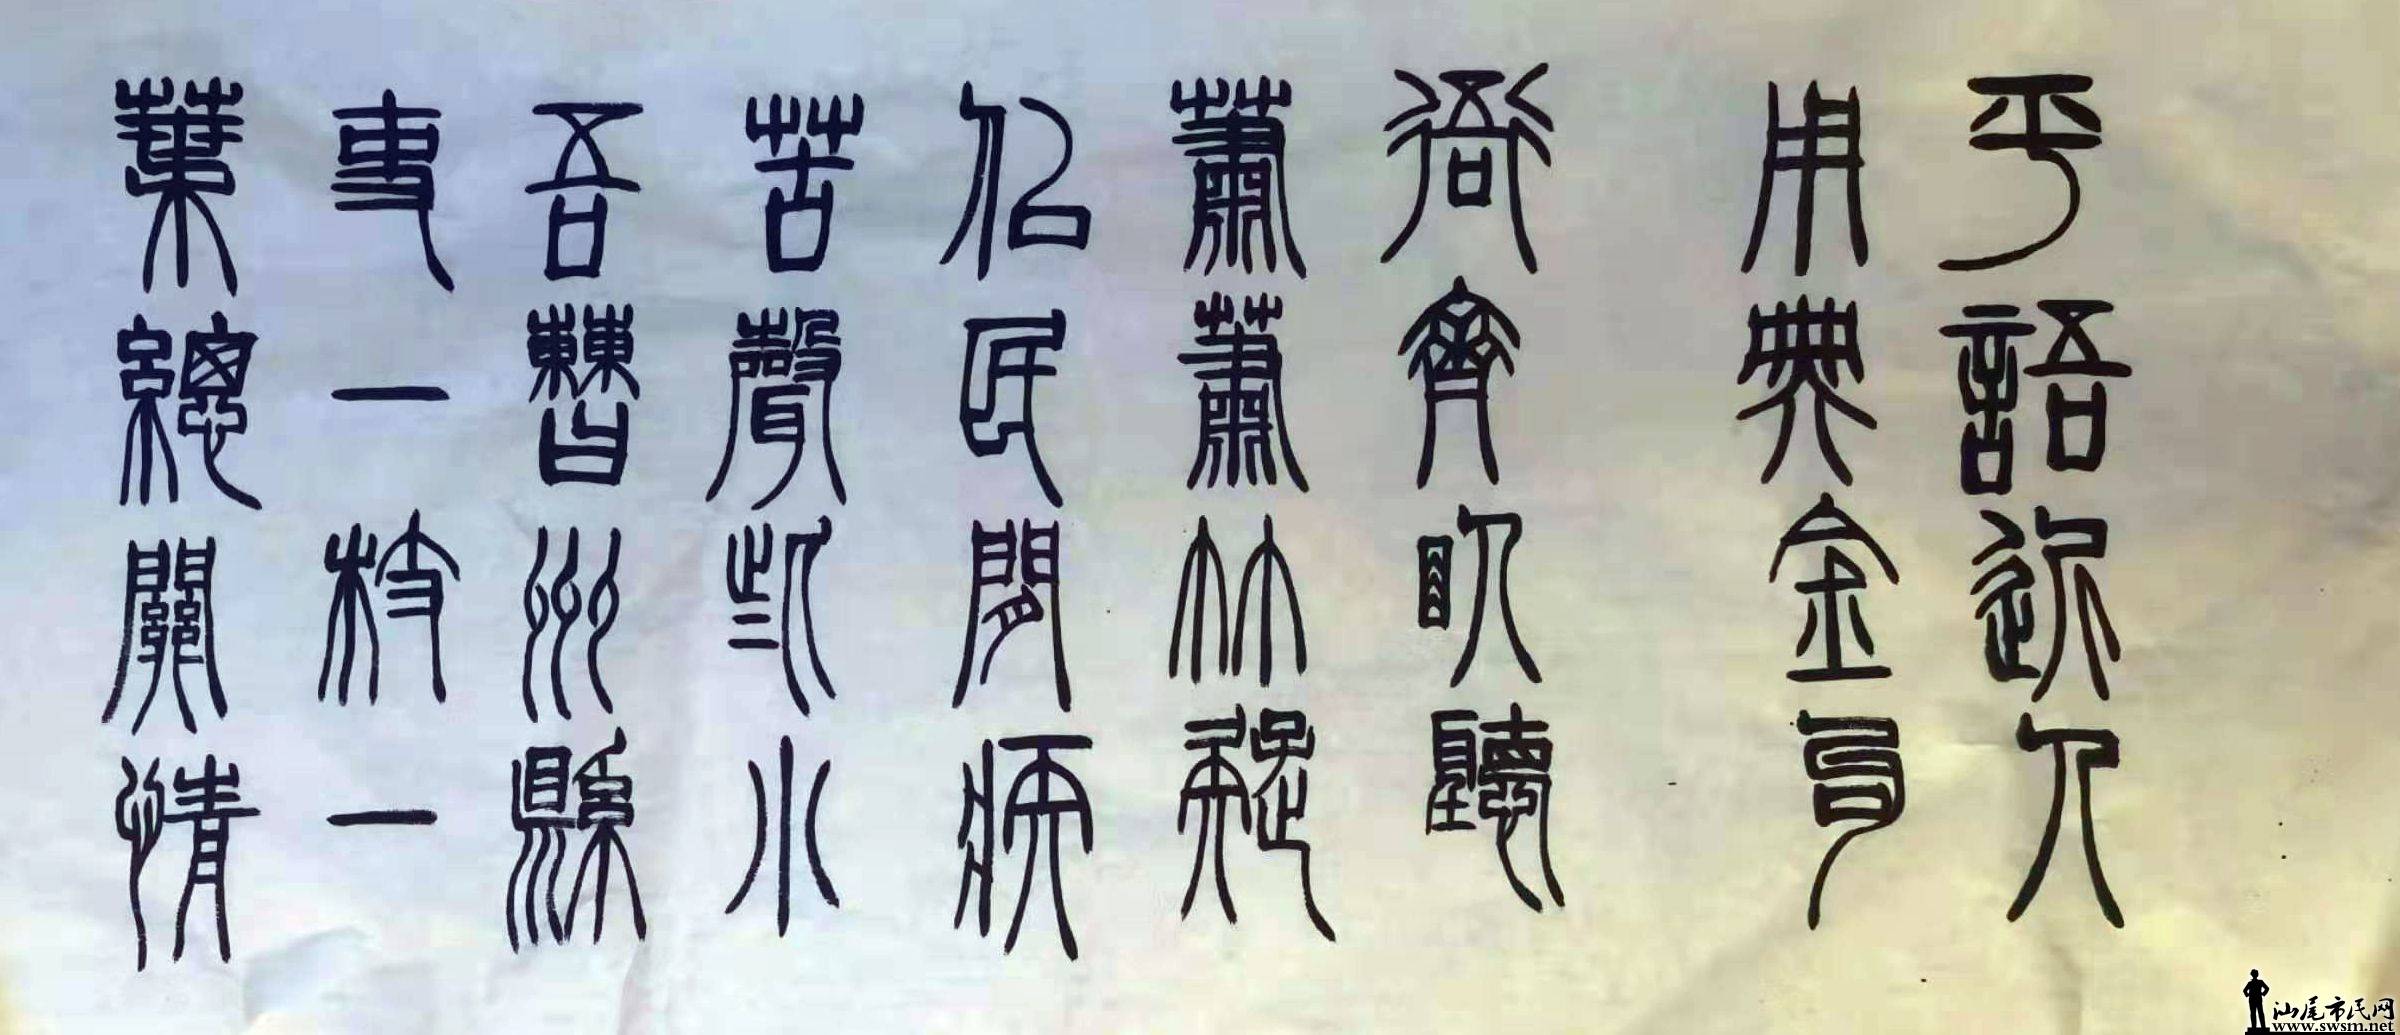 平語近人
用典金句
衙齋臥聽
蕭蕭竹疑
似民間病
苦聲些小
吾曹州縣
吏一枝一
葉總關情
汕尾市民网
www.swsm.net